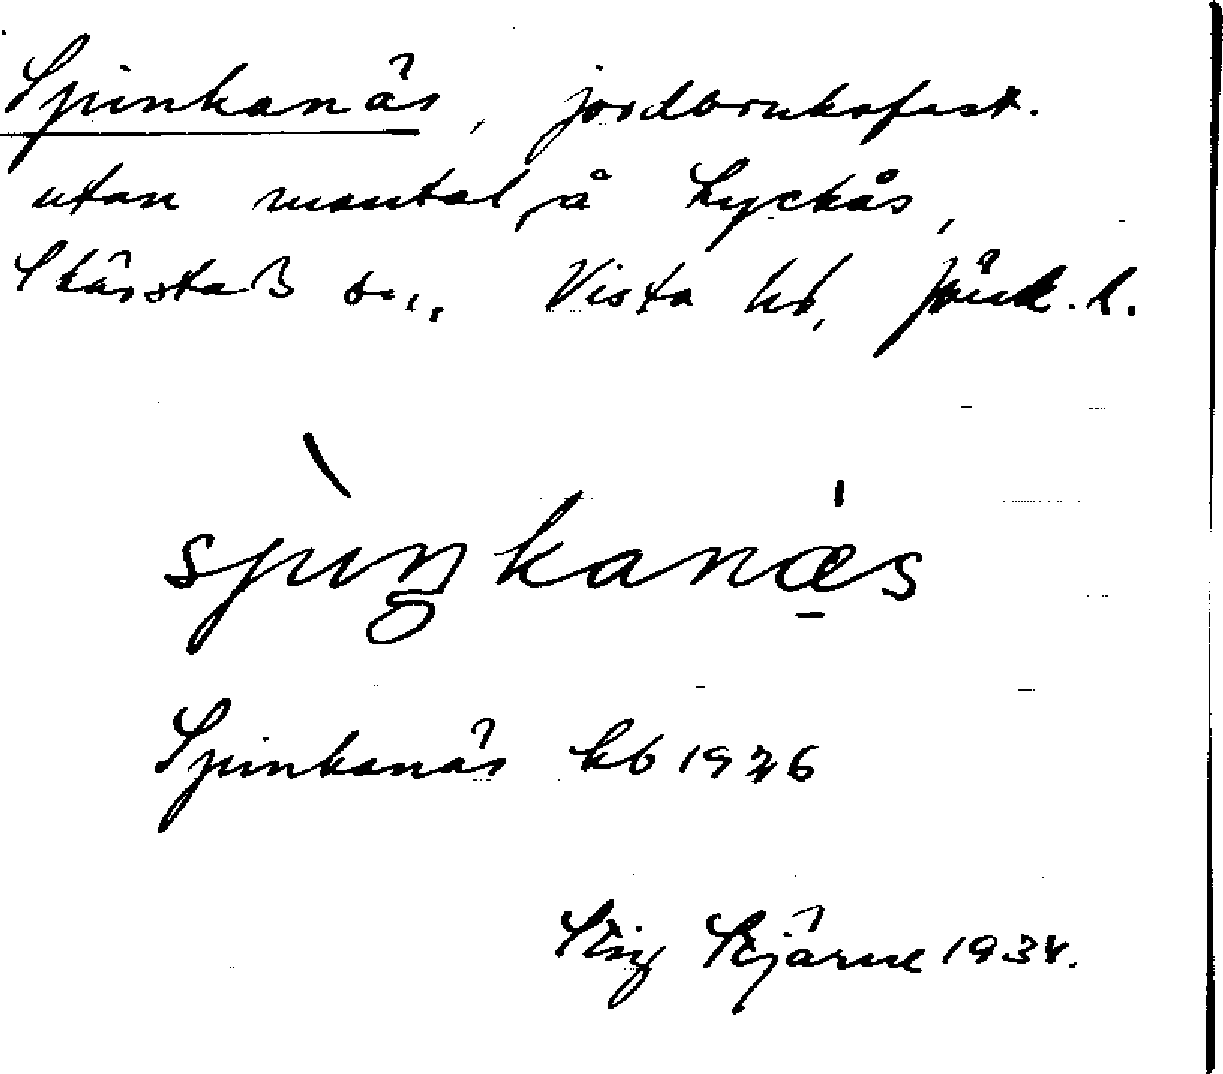 Spinkanäs, jordbruksfast.
utan mantal, å Lyckås,
Skärstads sn., Vista hd, Jönk. l.
spiŋkanæ̠s
Spinkanäs kb 1926
Stig Stjärne 1934.